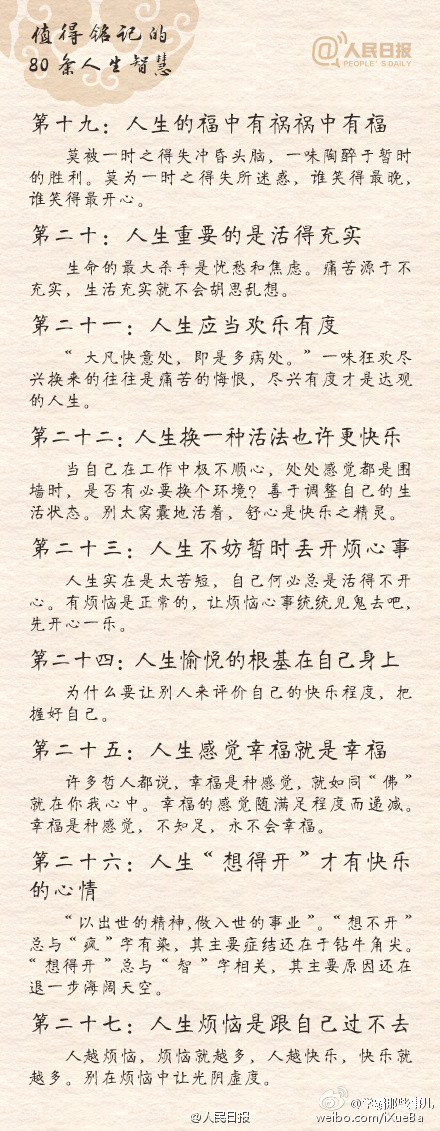 值得铭记的
80条人生智慧
@人民日报
PEOPLE'S DAILY
第十九：人生的福中有祸祸中有福
莫被一时之得失冲昏头脑，一味陶醉于暂时
的胜利。莫为一时之得失所迷惑，谁笑得最晚，
谁笑得最开心。
第二十：人生重要的是活得充实
生命的最大杀手是忧愁和焦虑。痛苦源于不
充实，生活充实就不会胡思乱想。
第二十一：人生应当欢乐有度
“大凡快意处，即是多病处。”一味狂欢尽
兴换来的往往是痛苦的悔恨，尽兴有度才是达观
的人生。
第二十二：人生换一种活法也许更快乐
当自己在工作中极不顺心，处处感觉都是围
墙时，是否有必要换个环境？善于调整自己的生
活状态。别太窝囊地活着，舒心是快乐之精灵。
第二十三：人生不妨暂时丢开烦心事
人生实在是太苦短，自己何必总是活得不开
心。有烦恼是正常的，让烦恼心事统统见鬼去吧，
先开心一乐。
第二十四：人生愉悦的根基在自己身上
为什么要让别人来评价自己的快乐程度，把
握好自己。
第二十五：人生感觉幸福就是幸福
许多哲人都说，幸福是种感觉，就如同“佛”
就在你我心中。幸福的感觉随满足程度而递减。
幸福是种感觉，不知足，永不会幸福。
第二十六：人生“想得开”才有快乐
的心情
“以出世的精神，做入世的事业”。“想不开”
总与“疯”字有染，其主要症结还在于钻牛角尖。
“想得开”总与“智”字相关，其主要原因还在
退一步海阔天空。
第二十七：人生烦恼是跟自己过不去
人越烦恼，烦恼就越多，人越快乐，快乐就
越多。别在烦恼中让光阴虚度。
@人民日报
@学霸那些事儿
weibo.com/iXueBa